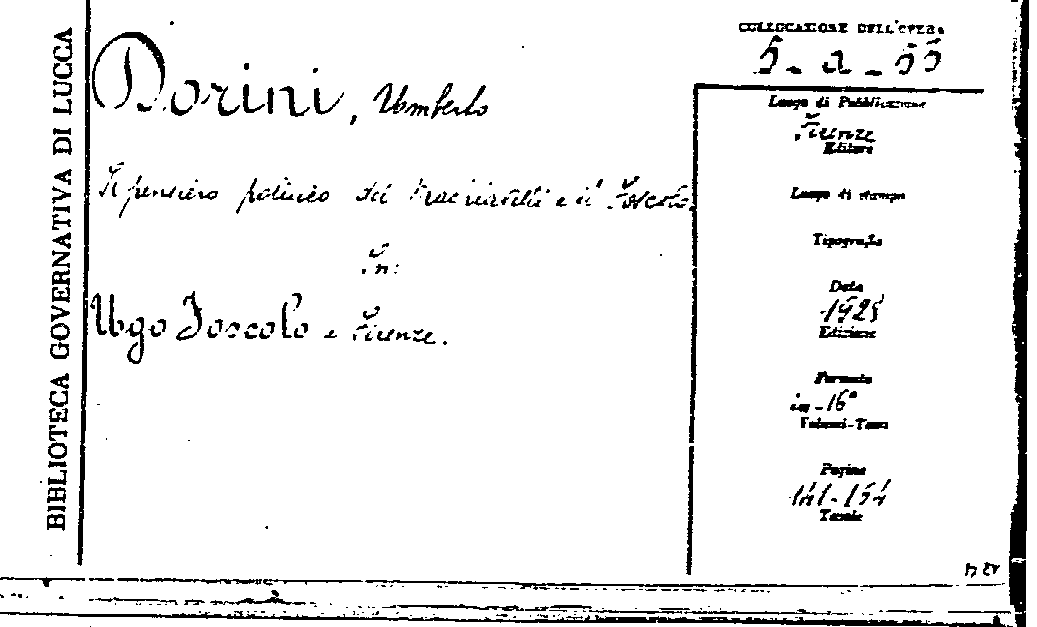 BIBLIOTECA GOVERNATIVA DI LUCCA
Dorini, Umberto
Il pensiero politico del Machiavelli e il Foscolo.
In:
Ugo Foscolo e Firenze.
COLLOCAZIONE DELL'OPERA
5 - a - 55
Luogo di Pubblicazione
Firenze
Editore
Luogo di stampa
Tipografia
Data
1928
Edizione
Formato
in-16°
Volumi-Tomi
Pagine
141-154
Tavole